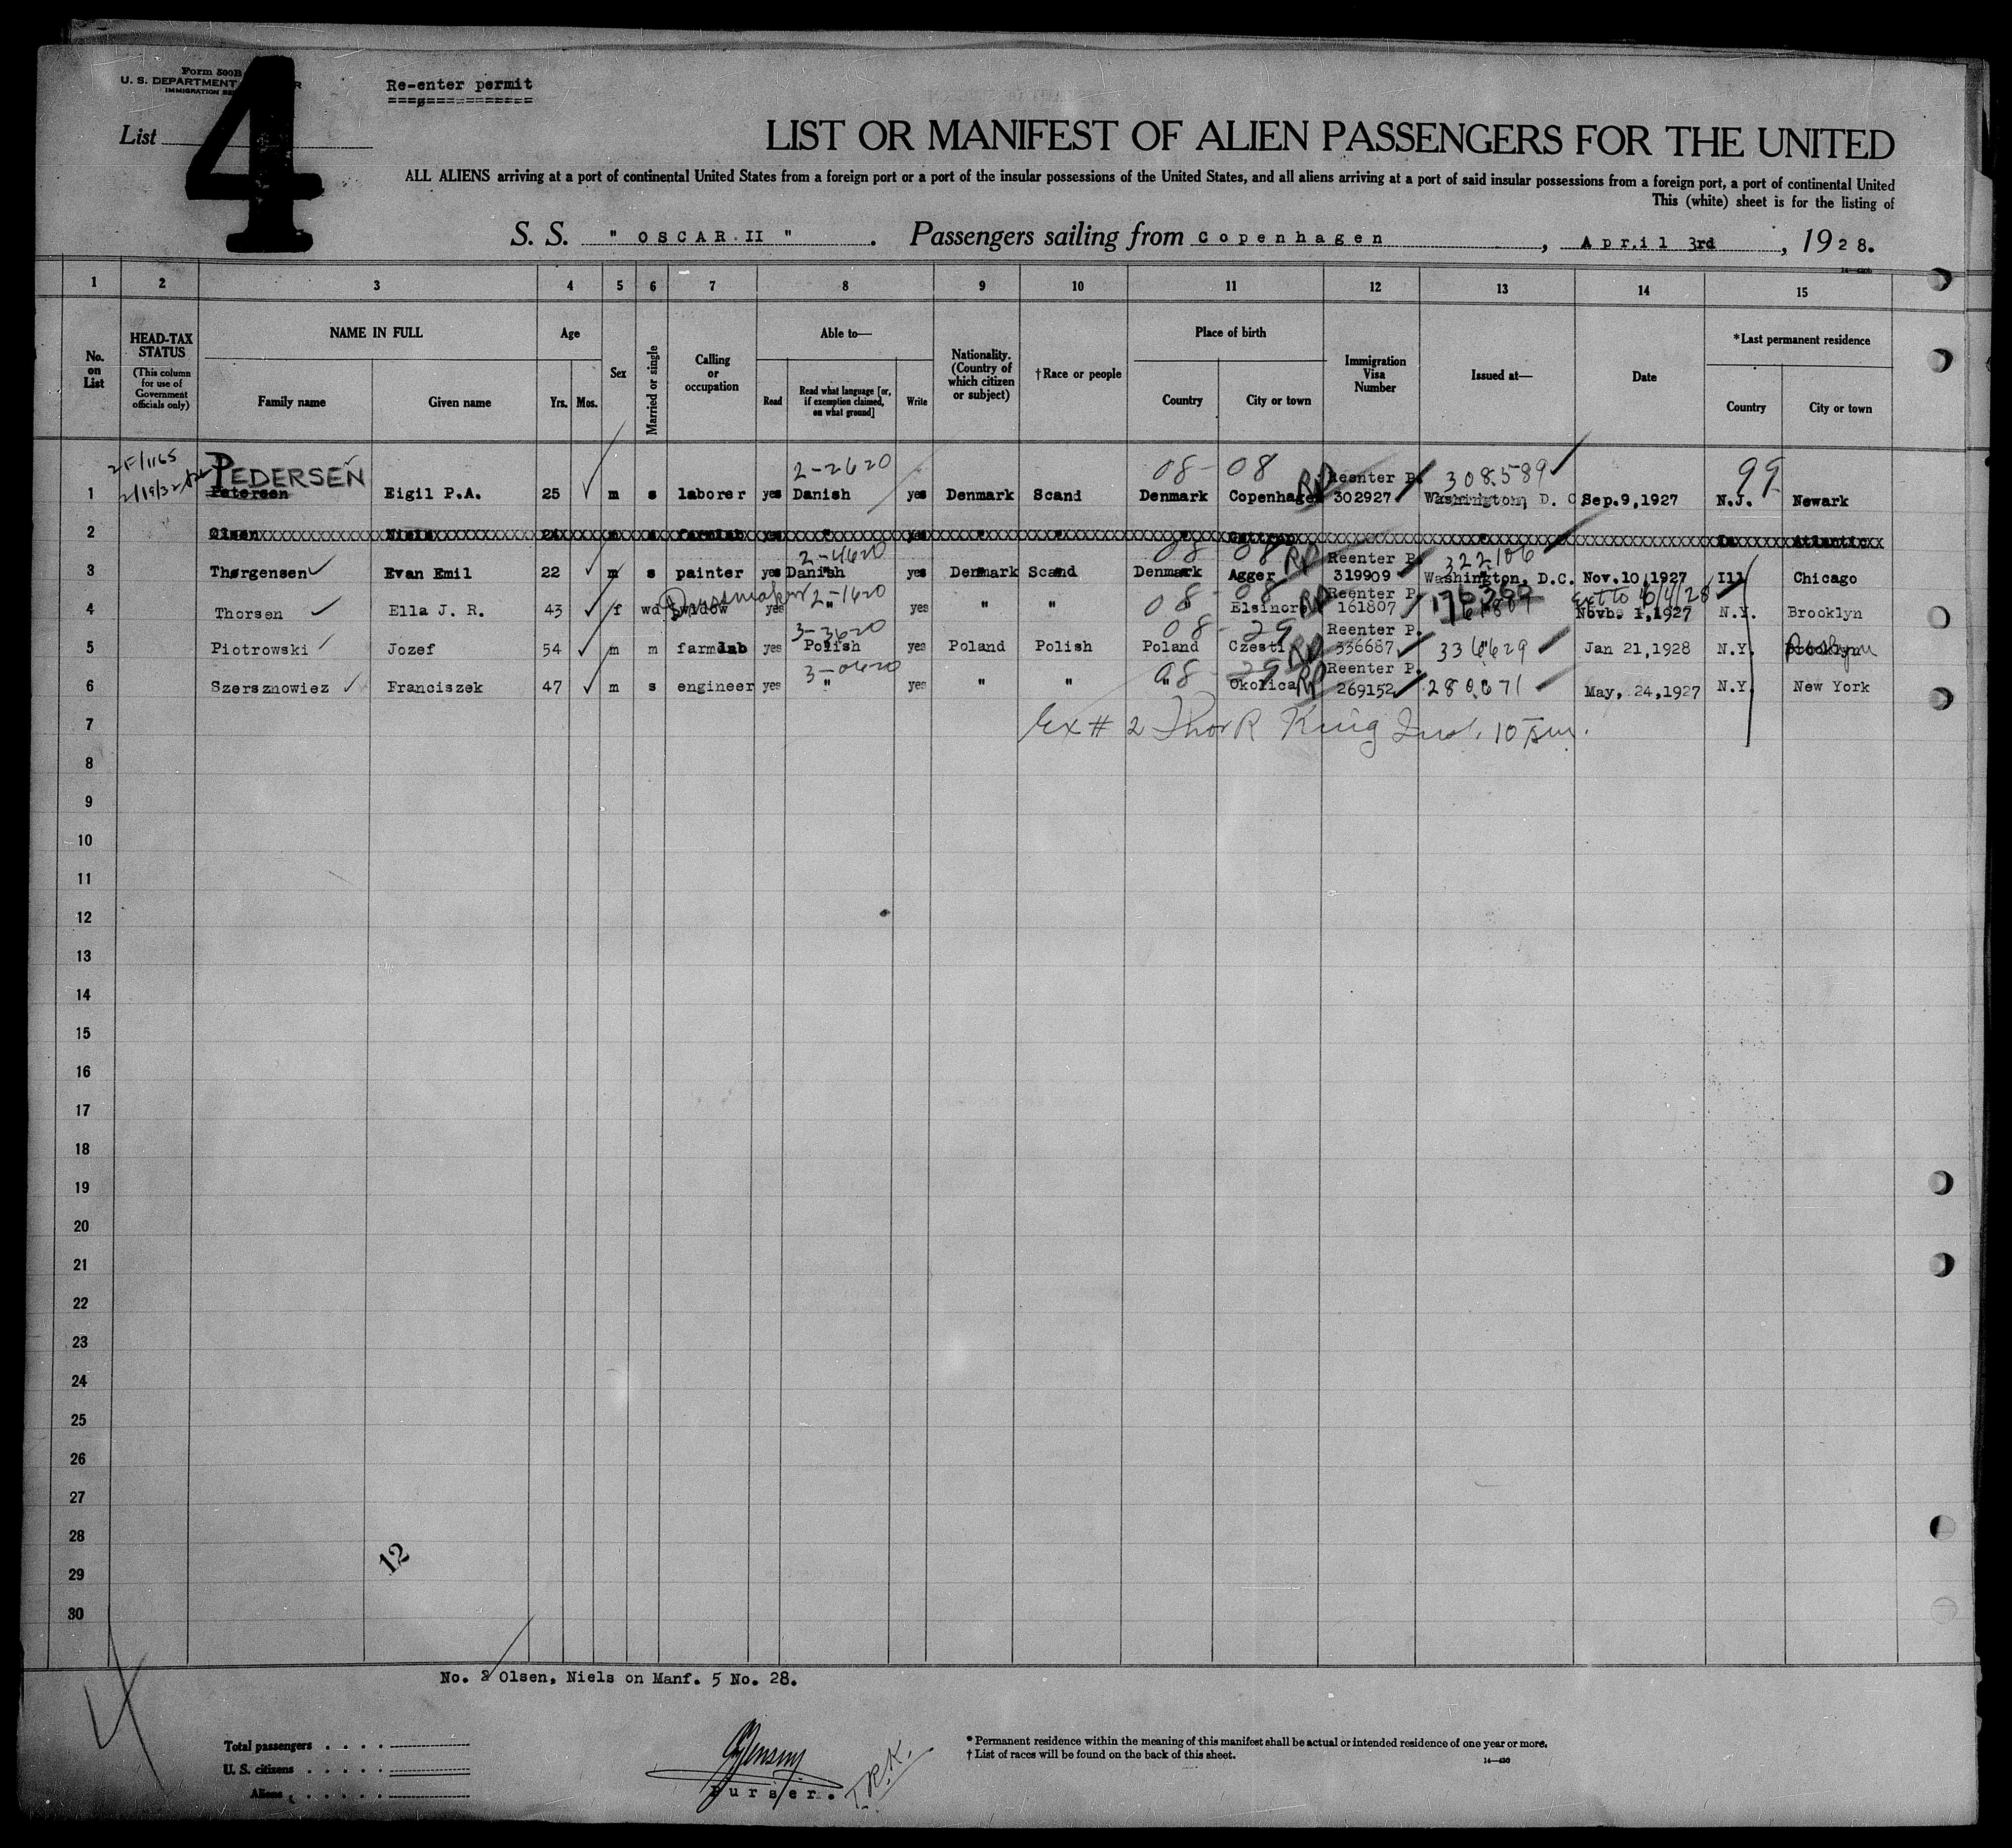 Form 500B
U. S. DEPARTMENT
IMMIGRATION
Re-enter permit
List
4
LIST OR MANIFEST OF ALIEN PASSENGERS FOR THE UNITED
ALL ALIENS arriving at a port of continental United States from a foreign port or a port of the insular possessions of the United States, and all aliens arriving at a port of said insular possessions from a foreign port, a port of continental United
This (white) sheet is for the listing of
S. S. " OSCAR II ". Passengers sailing from Copenhagen, April 3rd, 1928.
1 2 3 4 5 6 7 8 9 10 11 12 13 14 15
No. on List
HEAD-TAX STATUS (This column for use of Government officials only)
NAME IN FULL
Family name Given name
Age
Yrs. Mos.
Sex
Married or single
Calling or occupation
Able to—
Read Read what language [or, if exemption claimed, on what ground] Write
Nationality. (Country of which citizen or subject)
†Race or people
Place of birth
Country City or town
Immigration Visa Number
Issued at—
Date
*Last permanent residence
Country City or town
2F/1165 PEDERSEN 2-2620 08- 08 Reenter P. 308589 99
1 2/19/32 Petersen Eigil P.A. 25 m s laborer yes Danish yes Denmark Scand Denmark Copenhagen RP 302927 Washington, D. C Sep.9,1927 N.J. Newark
2 Olsen Niels 24 m s farmlab yes " yes " " " " Ia Atlantic
2-4620 08 08 Reenter P. 322106
3 Thørgensen Evan Emil 22 m s painter yes Danish yes Denmark Scand Denmark Agger RP 319909 Washington, D.C. Nov.10,1927 Ill Chicago
Dressmaker 2-1620 08-08 Reenter P. 176360 Ext to 6/4/28
4 Thorsen Ella J. R. 43 f wd widow yes " yes " " " Elsinore RP 161807 161807 Novb. 1,1927 N.Y. Brooklyn
3-3620 08-29 Reenter P.
5 Piotrowski Jozef 54 m m farmlab yes Polish yes Poland Polish Poland Czesti RP 336687 336629 Jan 21,1928 N.Y. Brooklyn
3-0620 08-29 Reenter P.
6 Szersznowiez Franciszek 47 m s engineer yes " yes " " " Okolica RP 269152 280671 May, 24,1927 N.Y. New York
7 Ex # 2 Thor R King Insl. 10
8
9
10
11
12
13
14
15
16
17
18
19
20
21
22
23
24
25
26
27
28
12
29
30
No. 2 Olsen, Niels on Manf. 5 No. 28.
Total passengers . . . .
U. S. citizens . . . . .
Aliens . . . . . .
Purser.
T.R.K.
* Permanent residence within the meaning of this manifest shall be actual or intended residence of one year or more.
† List of races will be found on the back of this sheet.
14—430